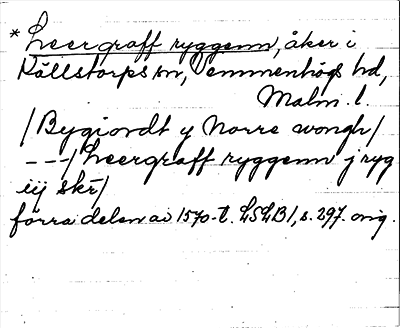 * Leergraff ryggenn, åker i
Källstorps sn, Vemmenhögs hd,
Malm. l.
/Bygiordt y Norre wongh/
---/Leergraff ryggenn j ryg
iij skr/
förra delen av 1570-t. LSLB1, s. 297. orig.